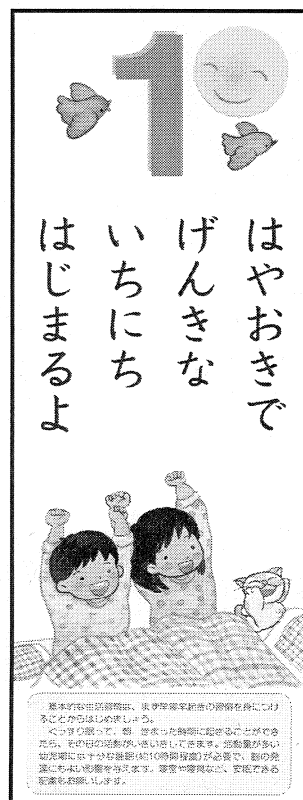 1
はやおきで
げんきな
いちにち
はじまるよ
基本的な生活習慣は、まず早寝早起きの習慣を身につけ
ることからはじめましょう。
ぐっすり眠って、朝、きまった時間に起きることができ
たら、その日の活動がいきいきしてきます。活動量が多い
幼児期には十分な睡眠(約10時間程度)が必要で、脳の発
達にもよい影響を与えます。寝室や寝具など、安眠できる
配慮もお願いします。